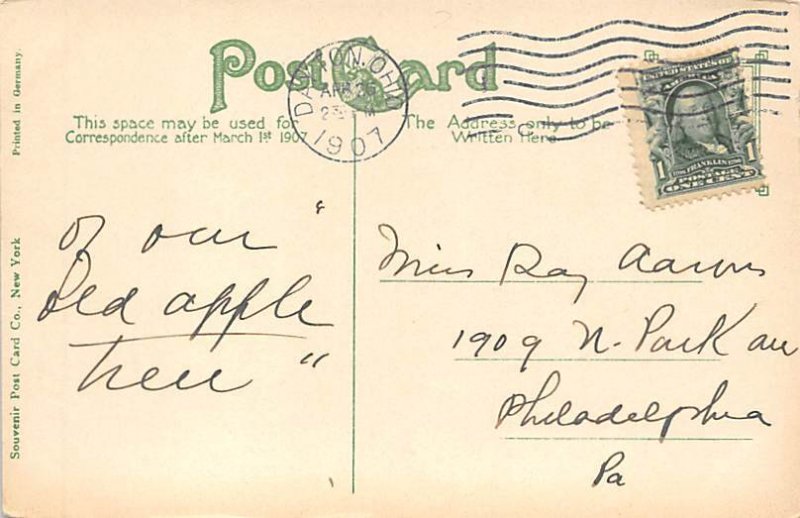 Post Card
DAYTON, OHIO
APR 26
1907
This space may be used for
Correspondence after March 1st 1907
The Address only to be
Written Here
UNITED STATES OF
AMERICA
1 1
FRANKLIN
POSTAGE
ONE CENT
Printed in Germany.
Souvenir Post Card Co., New York
of our "
old apple
tree "
Miss Ray Aarons
1909 N. Park av
Philadelphia
Pa